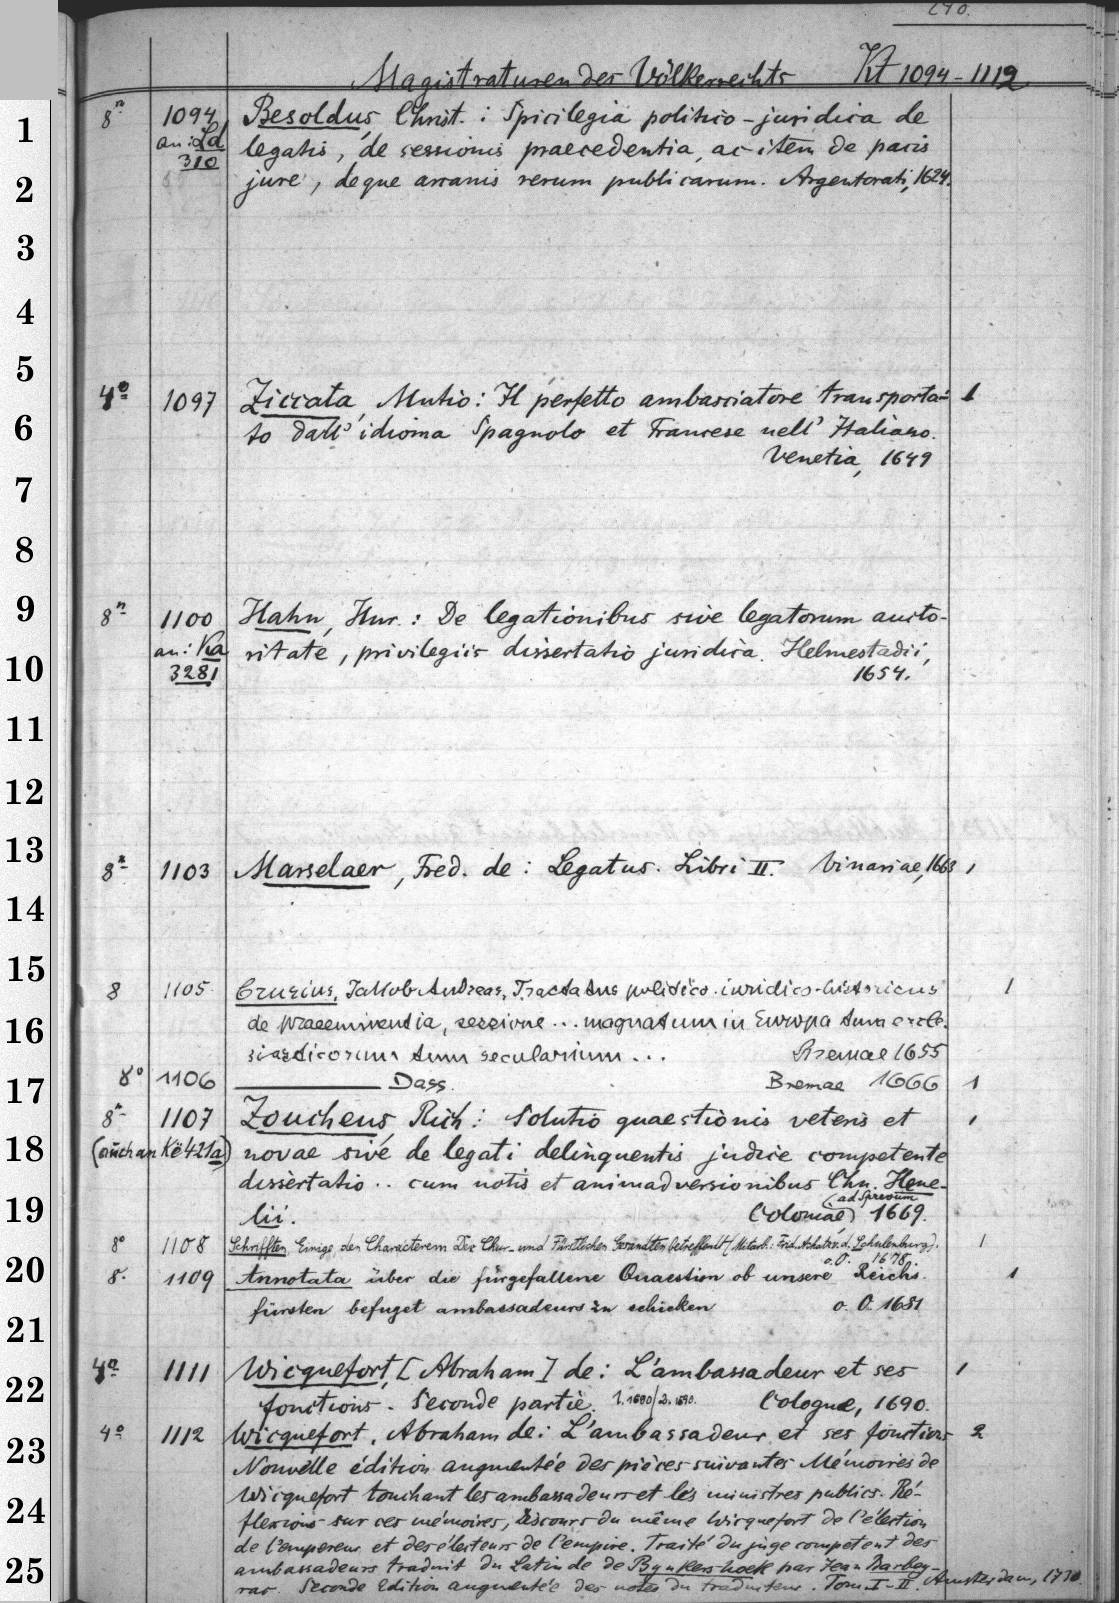 Magistraturen des Völkerrechts Kt 1094-1112
1
8º 1094 Besoldus, Christ.: Spicilegia politico-juridica de
an: Ld legatis, de sessionis praecedentia, ac item de pacis
310
2
jure, deque arcanis rerum publicarum. Argentorati, 1624.
3
4
5
4º 1097 Ziccata, Mutio: Il perfetto ambasciatore transporta- 1
6
to dall' idioma Spagnolo et Francese nell' Italiano.
Venetia, 1649
7
8
9
8º 1100 Hahn, Hnr.: De legationibus sive legatorum aucto-
an: Ka ritate, privilegiis dissertatio juridica. Helmestadii,
10
3281 1654.
11
12
13
8º 1103 Marselaer, Fred. de: Legatus. Libri II. Vinariae, 1663 1
14
15
8 1105 Crusius, Jakob Andreas, Tractatus politico-iuridico-historicus 1
16
de praeeminentia, sessione ... magnatum in Europa tum eccle-
siasticorum tum secularium ... Bremae 1655
17
8º 1106 Dass. Bremae 1666 1
8º 1107 Zoucheus, Rich: Solutio quaestionis veteris et 1
18
(auch an Kë 421a) novae sive de legati delinquentis judice competente
dissertatio .. cum notis et animadversionibus Chn. Hene-
19
lii. (ad Spreeum) Coloniae 1669.
8º 1108 Schrifften, Einige, den Characterem Der Chur- und Fürstlichen Gesandten betreffend (Mitarb.: Frd. Achatz v. d. Schulenburg). 1
o.O. 1678.
20
8. 1109 Annotata über die fürgefallene Quaestion ob unsere Reichs- 1
fürsten befuget ambassadeurs zu schicken o. O. 1681
21
4º 1111 Wicquefort, [Abraham] de: L'ambassadeur et ses 1
22
fonctions. Seconde partie. 1.1690/2.1690. Cologne, 1690.
4º 1112 Wicquefort, Abraham de: L'ambassadeur et ses fonctions 2
23
Nouvelle édition augmentée des pièces suivantes Mémoires de
Wicquefort touchant les ambassadeurs et les ministres publics. Ré-
24
flexions sur ces mémoires, discours du même Wicquefort de l'élection
de l'empereur et des électeurs de l'empire. Traité du juge competent des
25
ambassadeurs traduit du Latin de de Bynkershoek par Jean Barbey-
rac. Seconde Edition augmentée des notes du traducteur. Tom. I-II. Amsterdam, 1730.